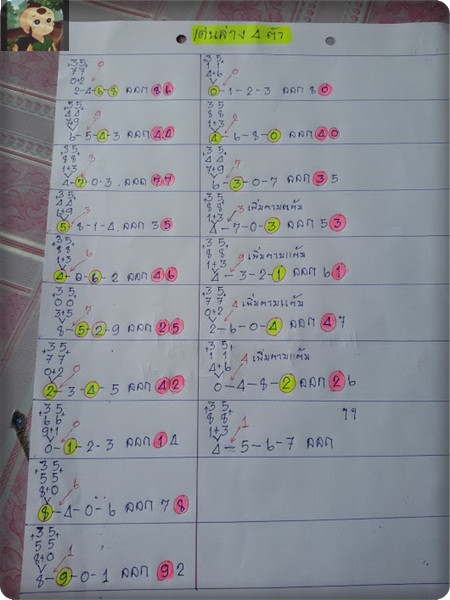 เด่นล่าง 4 ตัว
+3 5+
7 7
0+2
0
2-4-6-8 ออก 86
+3 5+
4 4
7+9
9
6-5-4-3 ออก 44
+3 5+
8 8
1+3
3
4-7-0-3 ออก 77
+3 5+
4 4
7+9
3
5-8-1-4 ออก 35
+3 5+
8 8
1+3
6
4-0-6-2 ออก 46
+3 5+
0 0
3+5
7
8-5-2-9 ออก 25
+3 5+
7 7
0+2
0
2-3-4-5 ออก 42
+3 5+
6 6
9+1
0
0-1-2-3 ออก 14
+3 5+
5 5
8+0
6
8-4-0-6 ออก 78
+3 5+
5 5
8+0
1
8-9-0-1 ออก 92
+3 5+
1 1
4+6
0
0-1-2-3 ออก 80
+3 5+
8 8
1+3
2
4-6-8-0 ออก 40
+3 5+
4 4
7+9
7
6-3-0-7 ออก 35
+3 5+
8 8
1+3
3 เพิ่มตามแต้ม
4-7-0-3 ออก 53
+3 5+
8 8
1+3
9 เพิ่มตามแต้ม
4-3-2-1 ออก 61
+3 5+
7 7
0+2
4 เพิ่มตามแต้ม
2-6-0-4 ออก 47
+3 5+
1 1
4+6
4 เพิ่มตามแต้ม
0-4-8-2 ออก 26
+3 5+
8 8
1+3
1
4-5-6-7 ออก ??